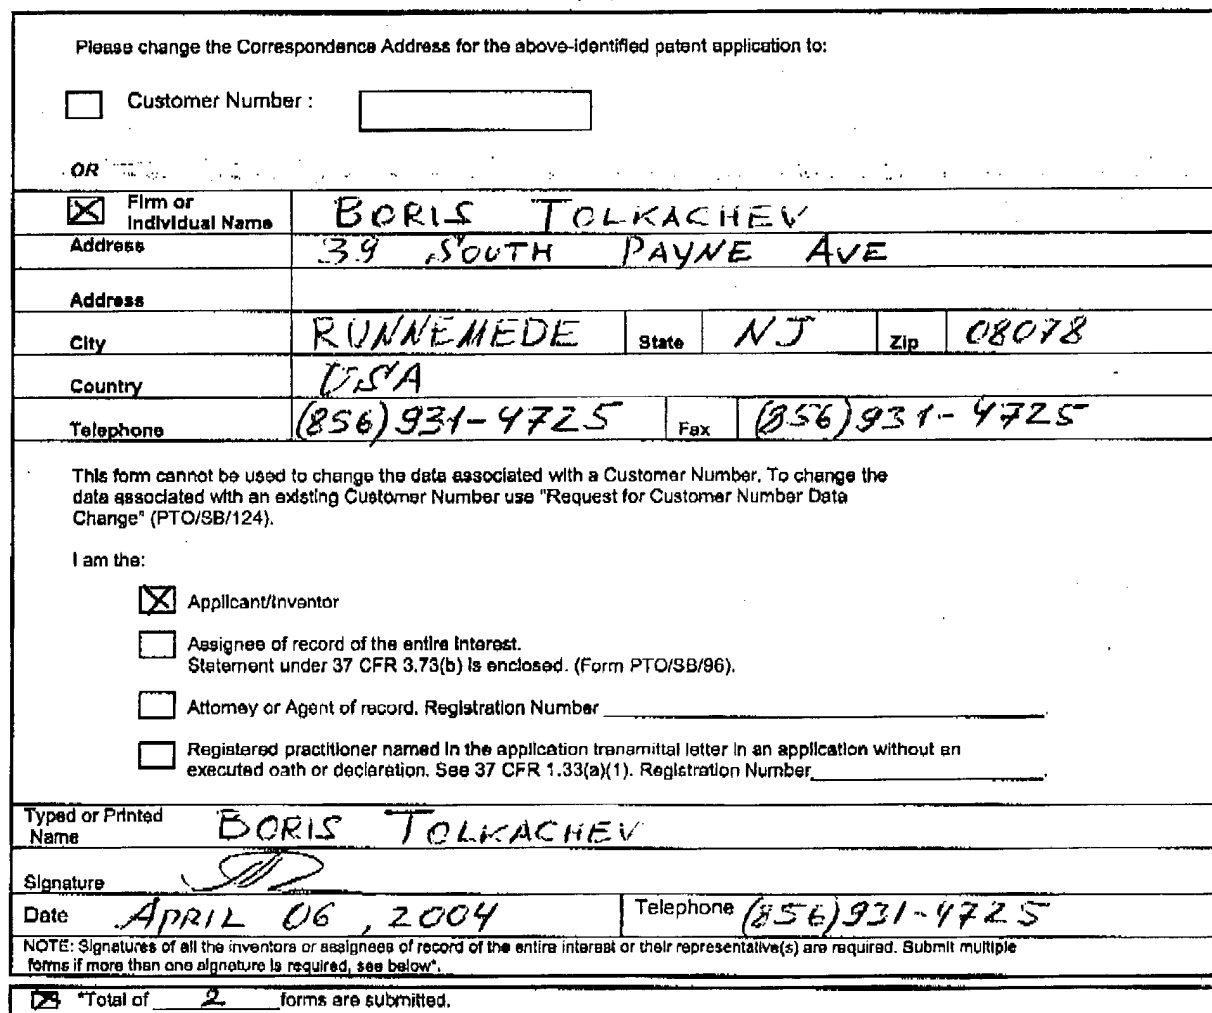 Please change the Correspondence Address for the above-identified patent application to:
Customer Number :
OR
Firm or
Individual Name BORIS TOLKACHEV
Address 39 SOUTH PAYNE AVE
Address
City RUNNEMEDE State NJ Zip 08078
Country USA
Telephone (856)931-4725 Fax (856)931-4725
This form cannot be used to change the data associated with a Customer Number. To change the
data associated with an existing Customer Number use "Request for Customer Number Data
Change" (PTO/SB/124).
I am the:
Applicant/Inventor
Assignee of record of the entire interest.
Statement under 37 CFR 3.73(b) is enclosed. (Form PTO/SB/96).
Attorney or Agent of record. Registration Number
Registered practitioner named in the application transmittal letter in an application without an
executed oath or declaration. See 37 CFR 1.33(a)(1). Registration Number
Typed or Printed
Name BORIS TOLKACHEV
Signature
Date APRIL 06, 2004 Telephone (856)931-4725
NOTE: Signatures of all the inventors or assignees of record of the entire interest or their representative(s) are required. Submit multiple
forms if more than one signature is required, see below*.
*Total of 2 forms are submitted.